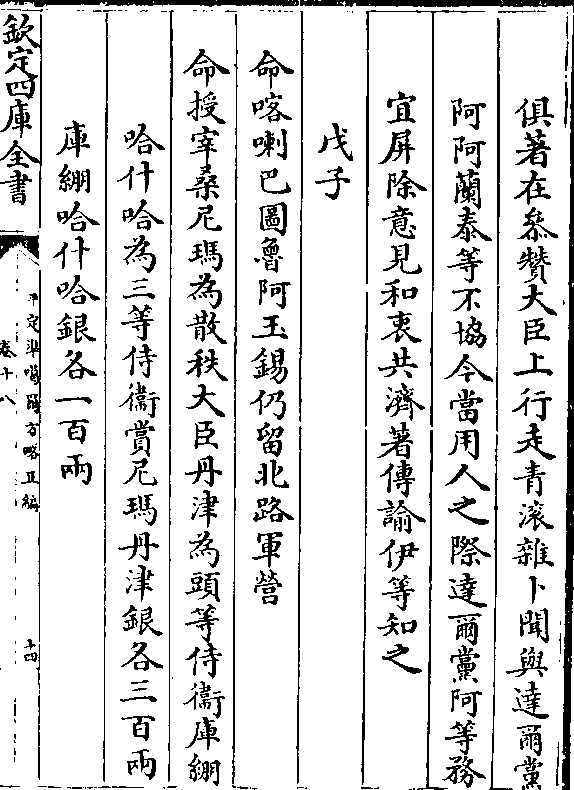 俱著在叅贊大臣上行走青滚雜卜聞與達爾黨
阿阿蘭泰等不協今當用人之際達爾黨阿等務
宜屏除意見和衷共濟著傳諭伊等知之
戊子
命喀喇巴圖魯阿玉錫仍留北路軍營
命授宰桑尼瑪為散秩大臣丹津為頭等侍衛庫綳
哈什哈為三等侍衛賞尼瑪丹津銀各三百兩
庫綳哈什哈銀各一百兩
欽定四庫全書
平定準噶爾方略正編
卷十八
十四